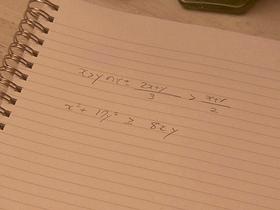 x>y निः 2x+y/3 > x+y/2
x² + 17y² ≥ 8xy